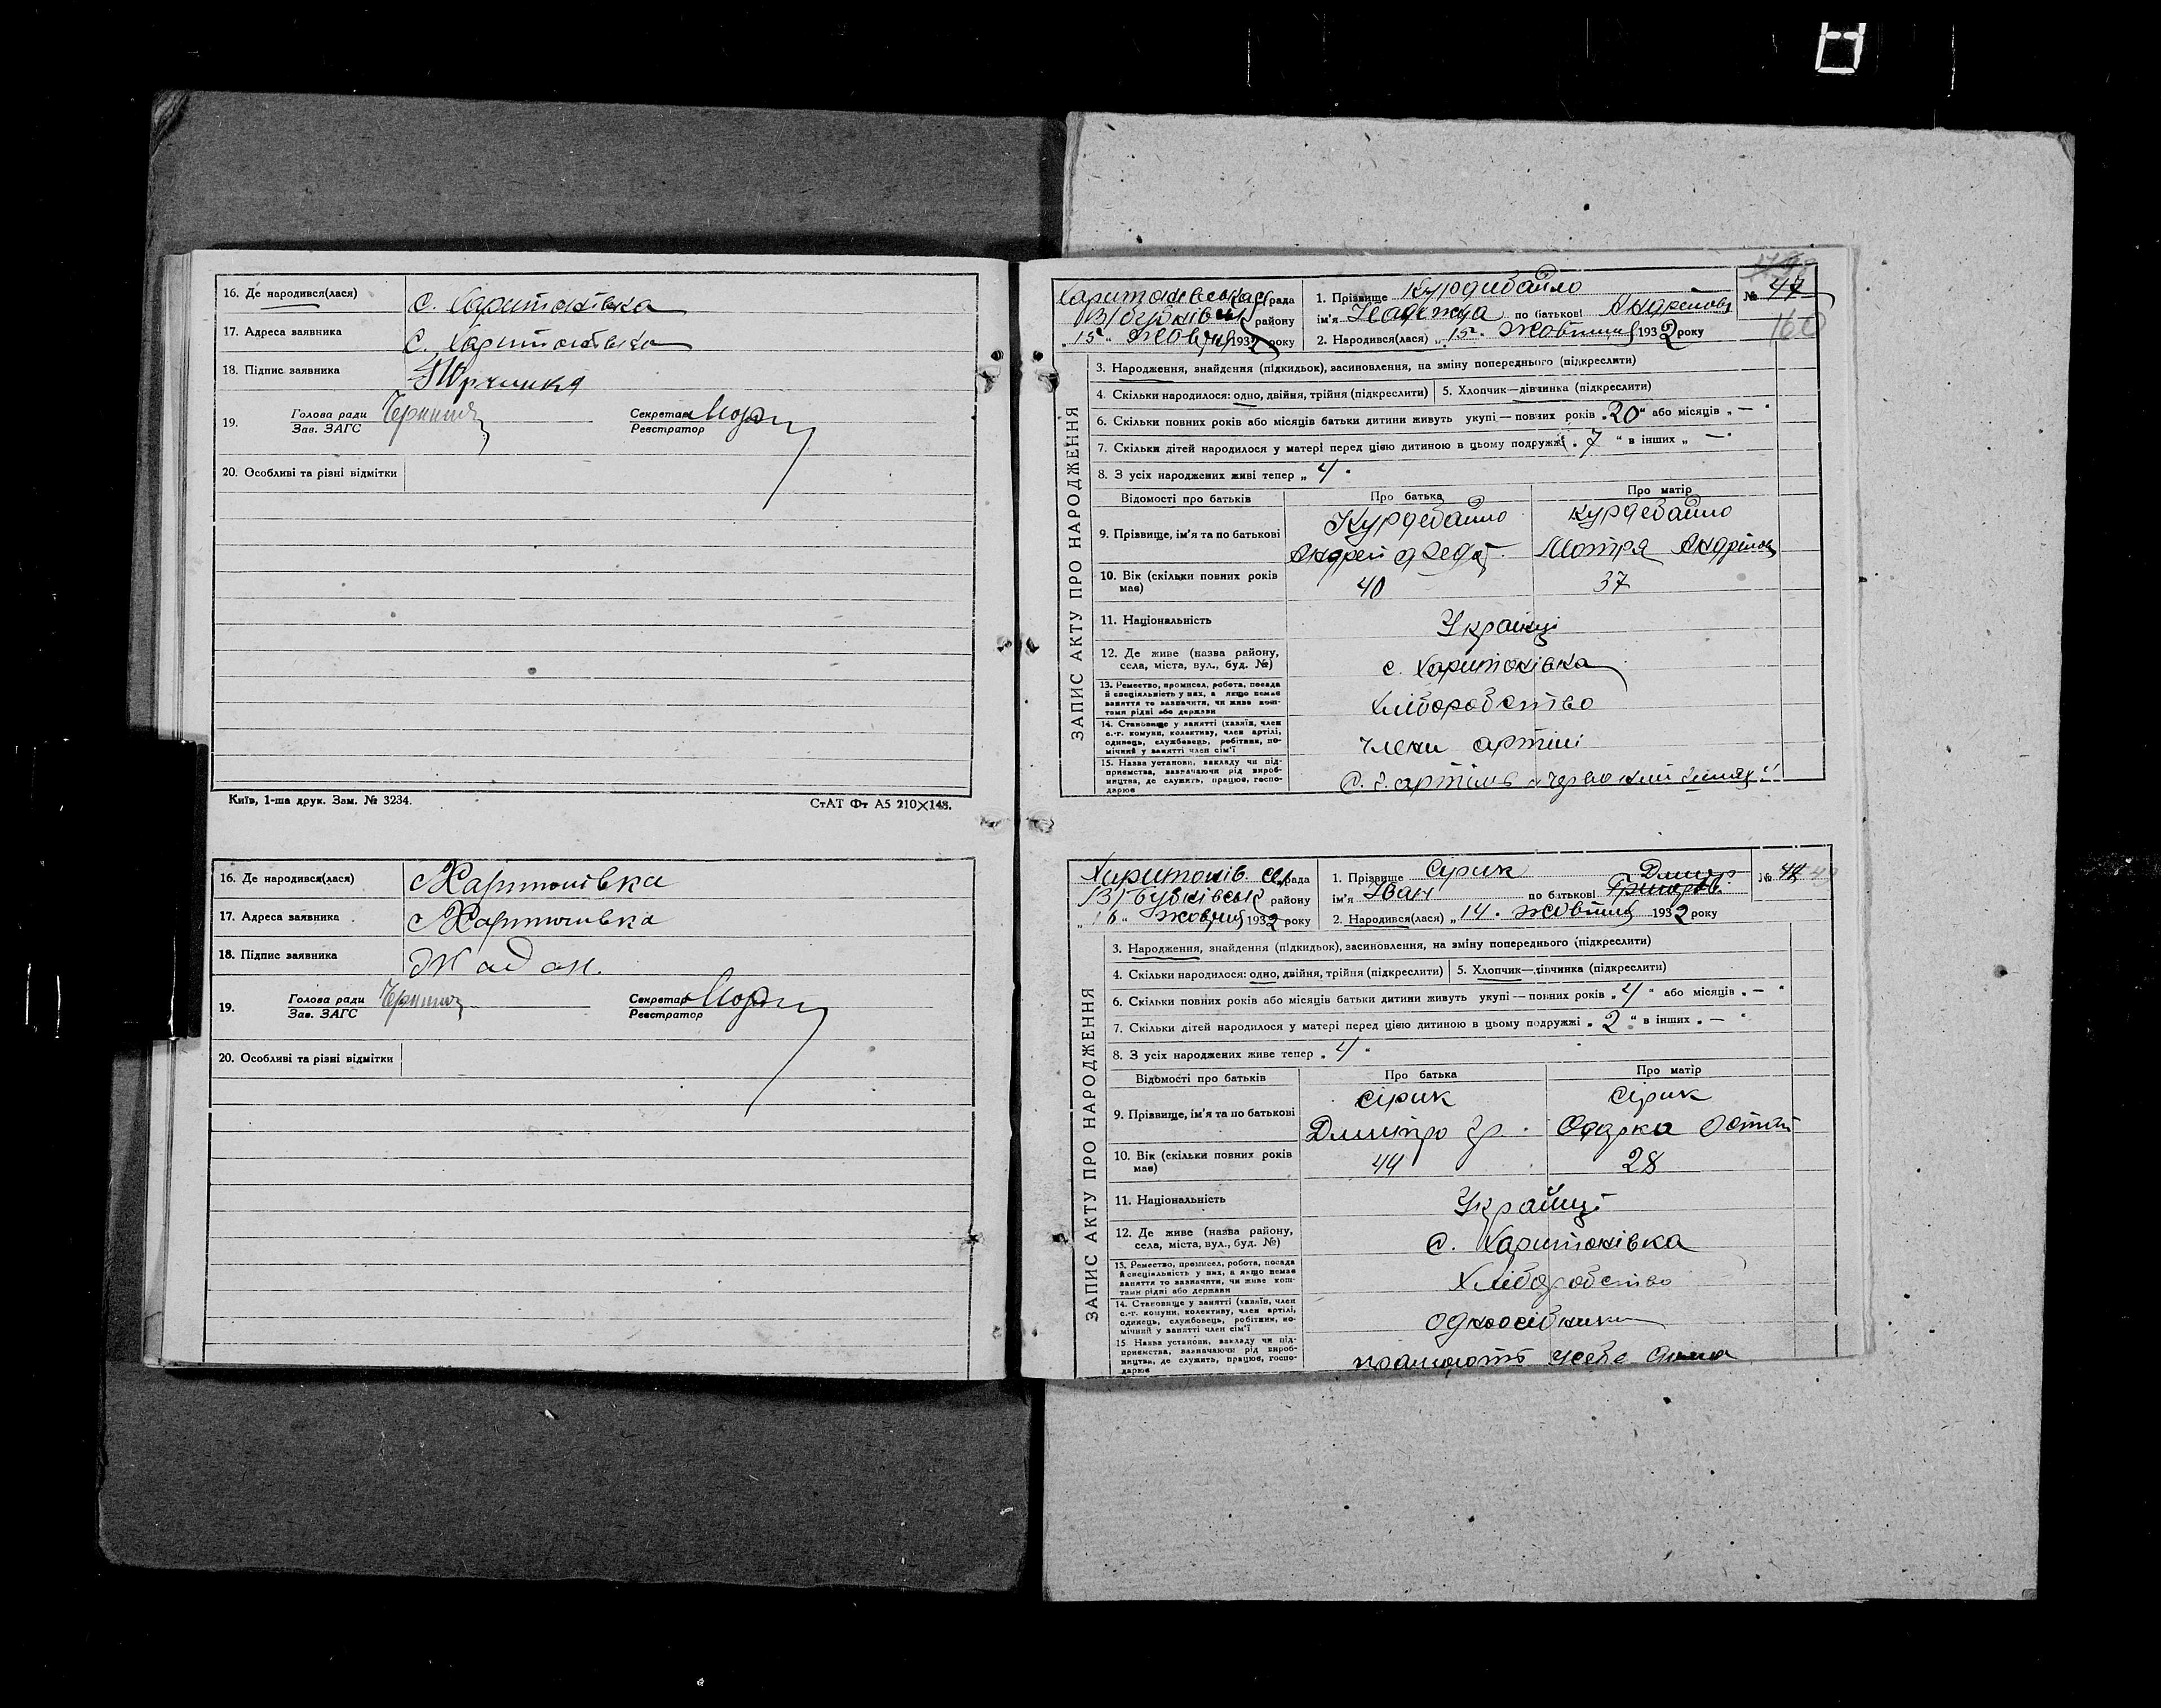 16. Де народився(лася) с. Харитонівка
17. Адреса заявника с. Харитонівка
18. Підпис заявника
19. Голова ради Секретар
Зав. ЗАГС Реєстратор
20. Особливі та різні відмітки
Київ, 1-ша друк. Зам. № 3234. СтАТ Фт А5 210×148.
16. Де народився(лася) с Харитонівка
17. Адреса заявника с Харитонівка
18. Підпис заявника Жадан.
19. Голова ради Секретар
Зав. ЗАГС Реєстратор
20. Особливі та різні відмітки
ЗАПИС АКТУ ПРО НАРОДЖЕННЯ
рада 1. Прізвище Курдибайло № 47
району ім'я Надежда по батькові Андреївна
„15" Жовтня 1932 року 2. Народився(лася) „15" Жовтня 1932 року
160
3. Народження, знайдення (підкидьок), засиновлення, на зміну попереднього (підкреслити)
4. Скільки народилося: одно, двійня, трійня (підкреслити) 5. Хлопчик—дівчинка (підкреслити)
6. Скільки повних років або місяців батьки дитини живуть укупі — повних років „20" або місяців „—"
7. Скільки дітей народилося у матері перед цією дитиною в цьому подружжі „7" в інших „—"
8. З усіх народжених живі тепер „4"
Відомості про батьків Про батька Про матір
9. Прізвище, ім'я та по батькові Курдебайло Курдебайло
Андрей Мотря
10. Вік (скільки повних років 40 37
має)
11. Національність Українці
12. Де живе (назва району, с. Харитонівка
села, міста, вул., буд. №)
13. Ремество, промисел, робота, посада Хліборобство
й спеціяльність у них, а якщо немає
заняття то зазначити, чи живе кош-
тами рідні або держави
14. Становище у занятті (хазяїн, член члени артілі
с.-г. комуни, колективу, член артілі,
одинець, службовець, робітник, по-
мічний у занятті член сім'ї
15. Назва установи, закладу чи під- с. г. артіль
приємства, зазначаючи рід вироб-
ництва, де служить, працює, госпо-
дарює
ЗАПИС АКТУ ПРО НАРОДЖЕННЯ
Харитонів. рада 1. Прізвище Сірик Дмитр. №
району ім'я Іван по батькові
„16" Жовтня 1932 року 2. Народився(лася) „14" Жовтня 1932 року
3. Народження, знайдення (підкидьок), засиновлення, на зміну попереднього (підкреслити)
4. Скільки народилося: одно, двійня, трійня (підкреслити) 5. Хлопчик—дівчинка (підкреслити)
6. Скільки повних років або місяців батьки дитини живуть укупі — повних років „4" або місяців „—"
7. Скільки дітей народилося у матері перед цією дитиною в цьому подружжі „2" в інших „—"
8. З усіх народжених живе тепер „4"
Відомості про батьків Про батька Про матір
9. Прізвище, ім'я та по батькові Сірик Сірик
Дмитро Гр. Одарка
10. Вік (скільки повних років 44 28
має)
11. Національність Українці
12. Де живе (назва району, с. Харитонівка
села, міста, вул., буд. №)
13. Ремество, промисел, робота, посада Хліборобство
й спеціяльність у них, а якщо немає
заняття то зазначити, чи живе кош-
тами рідні або держави
14. Становище у занятті (хазяїн, член одноосібники
с.-г. комуни, колективу, член артілі,
одинець, службовець, робітник, по-
мічний у занятті член сім'ї
15. Назва установи, закладу чи під- працюють усебе
приємства, зазначаючи рід вироб-
ництва, де служить, працює, госпо-
дарює